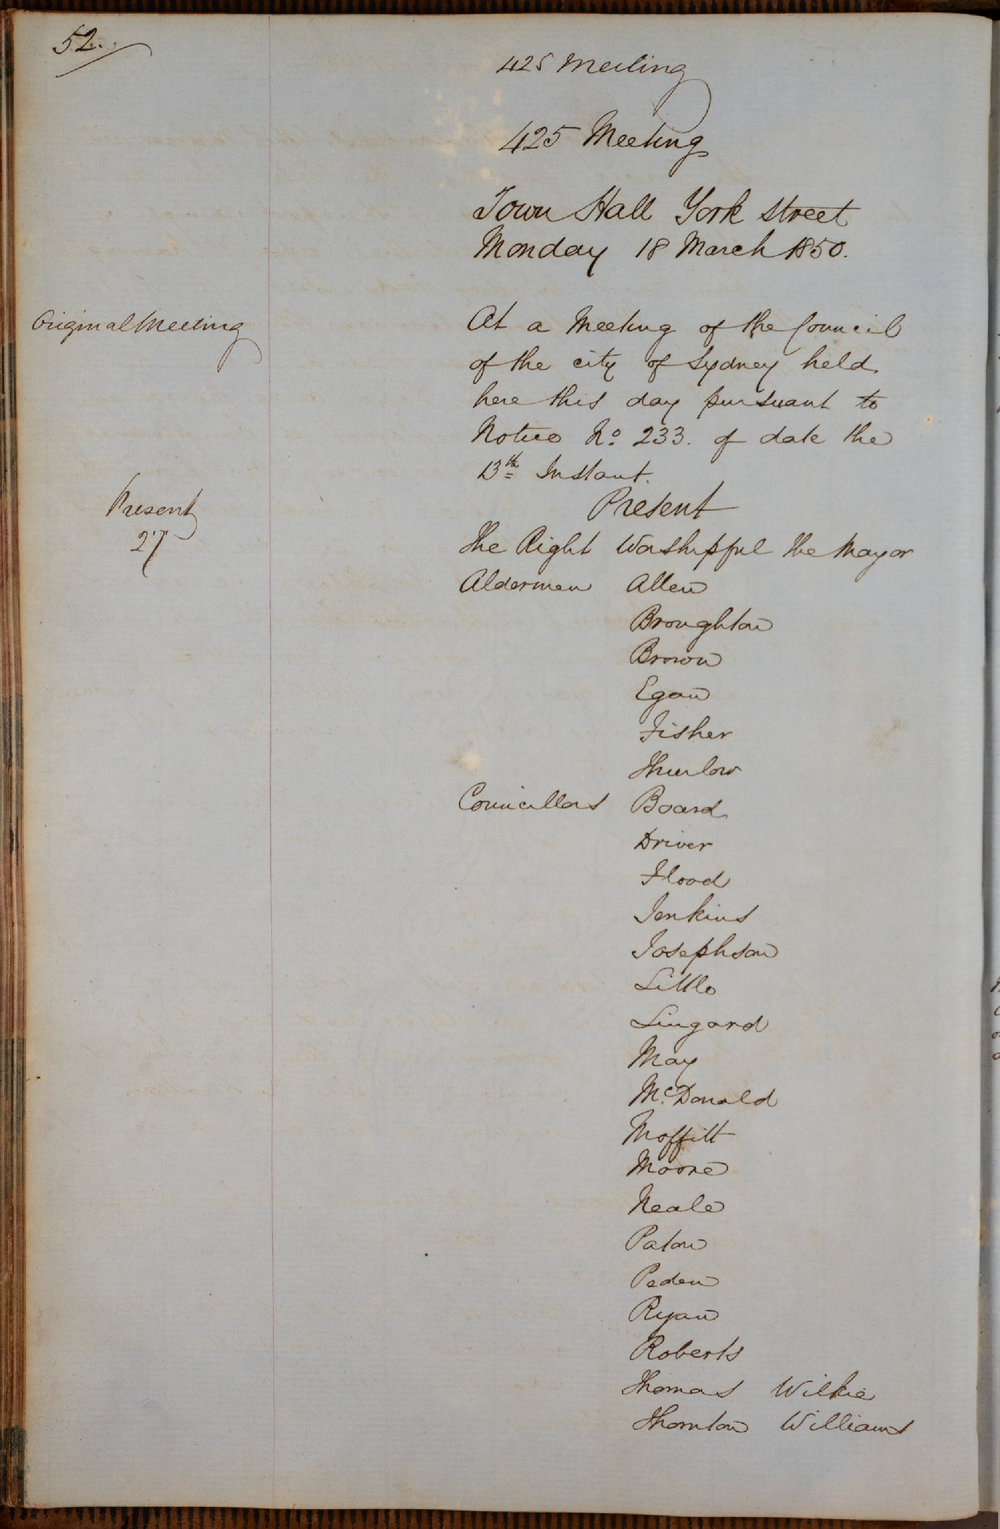 52.
425 Meeting
425 Meeting
Town Hall York street
Monday 18 March 1850.
Original Meeting
At a Meeting of the Council
of the city of Sydney held
here this day pursuant to
Notice No. 233. of date the
13th Instant.
Present
Present
27
The Right Worshipful the Mayor
Aldermen Allen
Broughton
Brown
Egan
Fisher
Thurlow
Councillors Board
Driver
Flood
Jenkins
Josephson
Little
Lingard
May
McDonald
Moffitt
Moore
Neale
Paton
Peden
Ryan
Roberts
Thomas Wilkie
Thornton Williams